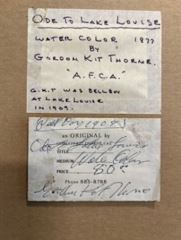 ODE TO LAKE LOUISE
WATER COLOR 1977
BY
GORDON KIT THORNE
"A.F.C.A."
G.K.T WAS BELLBOY
AT LAKE LOUISE
IN 1909.
an ORIGINAL by
TITLE
MEDIUM Water Color
PRICE 80
Phone 885-8788